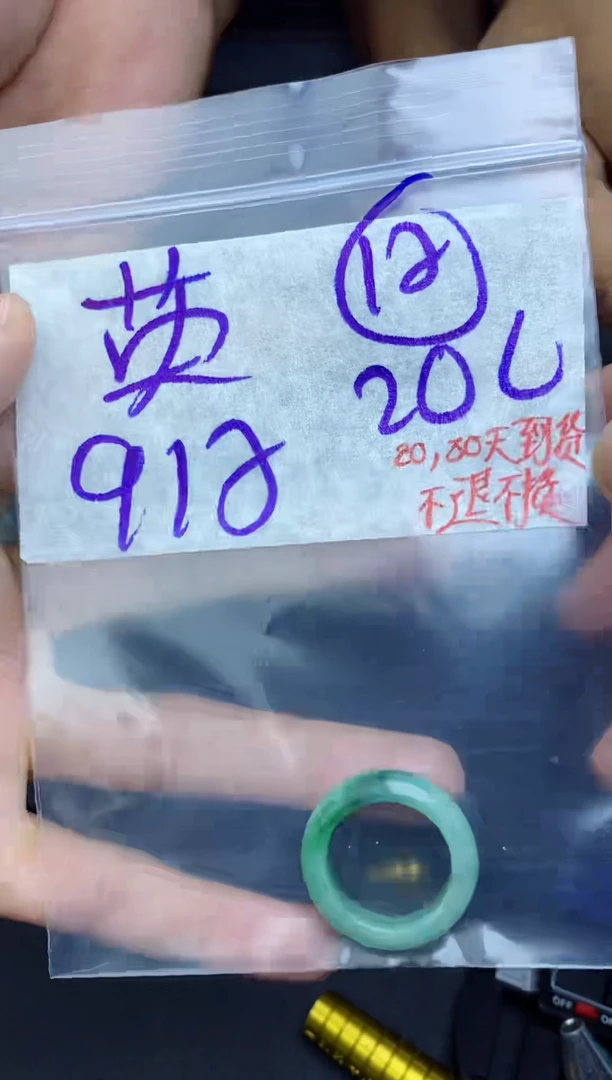 英
912
12
20 L
80,80天到货
不退不换
OFF